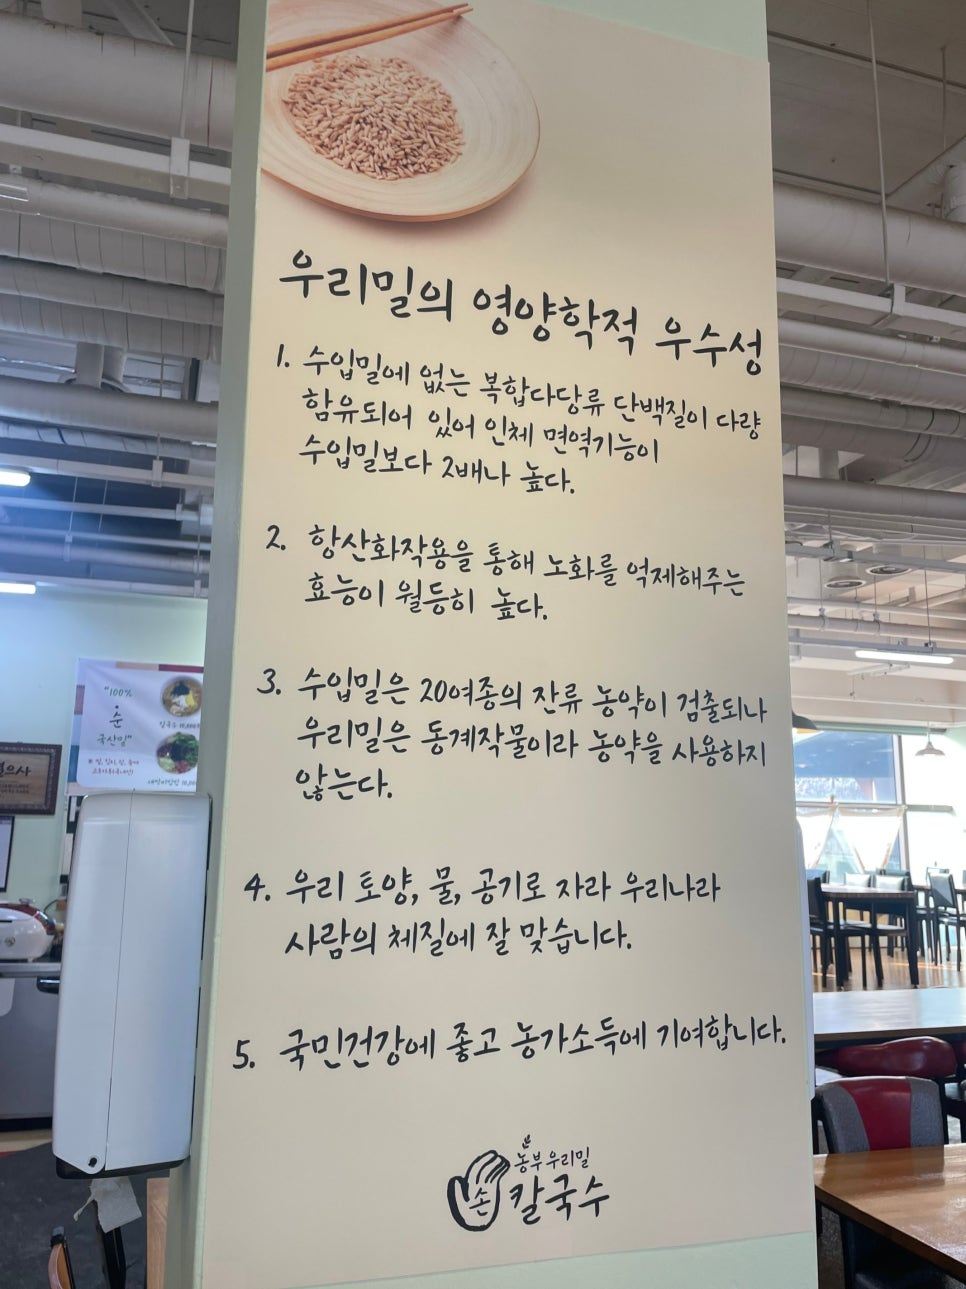 우리밀의 영양학적 우수성
1. 수입밀에 없는 복합다당류 단백질이 다량
함유되어 있어 인체 면역기능이
수입밀보다 2배나 높다.
2. 항산화작용을 통해 노화를 억제해주는
효능이 월등히 높다.
3. 수입밀은 20여종의 잔류 농약이 검출되나
우리밀은 동계작물이라 농약을 사용하지
않는다.
4. 우리 토양, 물, 공기로 자라 우리나라
사람의 체질에 잘 맞습니다.
5. 국민건강에 좋고 농가소득에 기여합니다.
농부우리밀
손 칼국수
"100%
순
국산밀"
칼국수 10,000